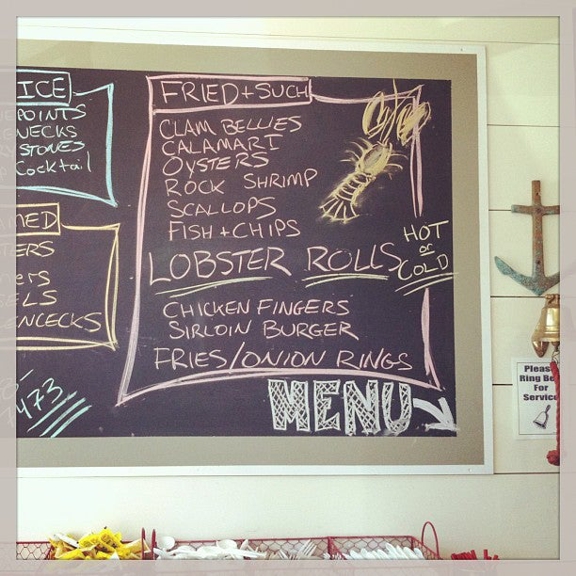 ICE
POINTS
NECKS
STONES
Cocktail
MED
ERS
ers
ELS
ENCECKS
473
FRIED + SUCH
CLAM BELLIES
CALAMARI
OYSTERS
ROCK SHRIMP
SCALLOPS
FISH + CHIPS
LOBSTER ROLLS HOT or COLD
CHICKEN FINGERS
SIRLOIN BURGER
FRIES/ONION RINGS
MENU
Please
Ring Be
For
Service